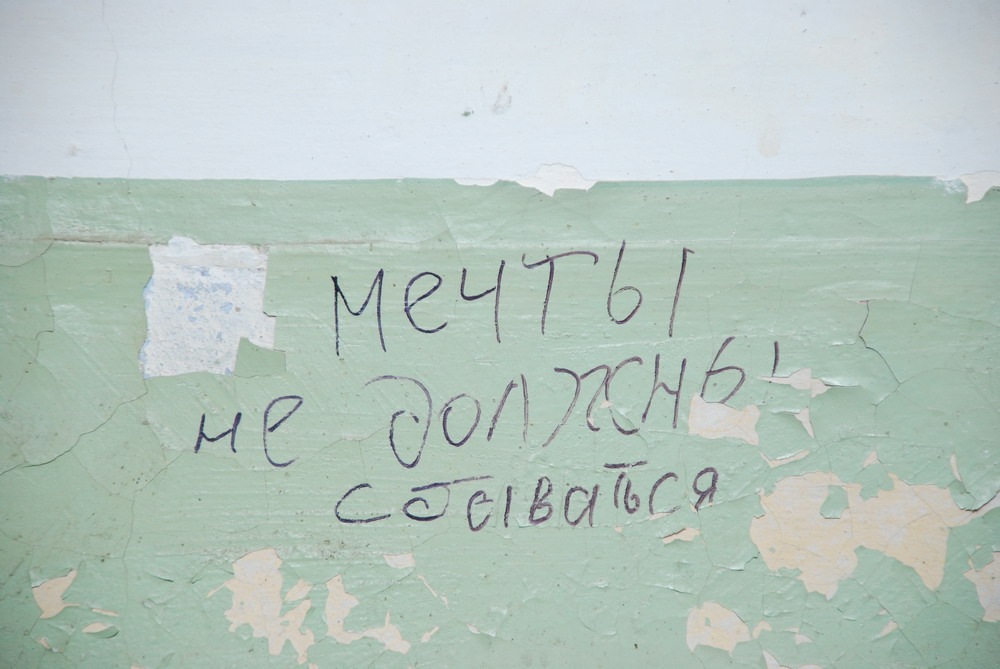 мечты
не должны
сбываться